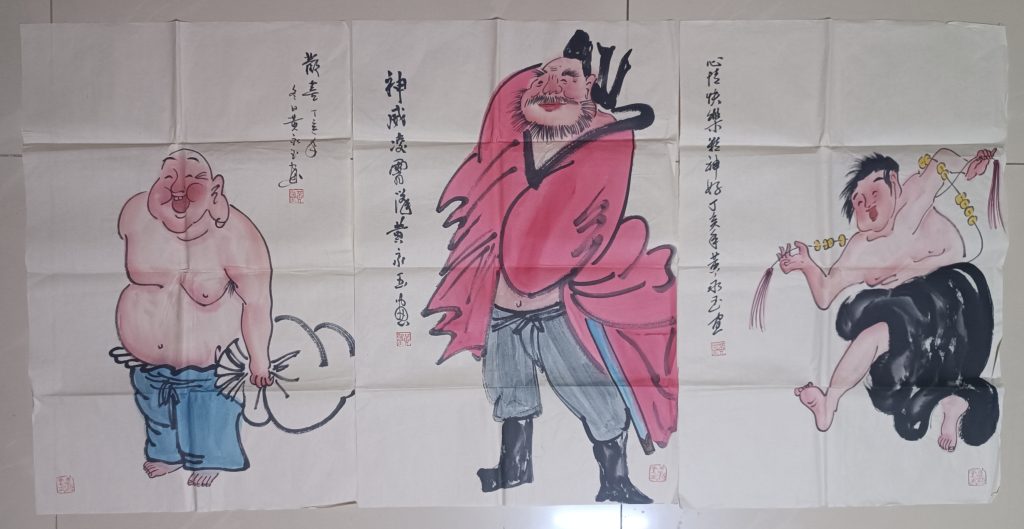 散喜 丁亥年
冬日黄永玉画
神威凌霄汉黄永玉画
心情快樂精神好丁亥年黄永玉画